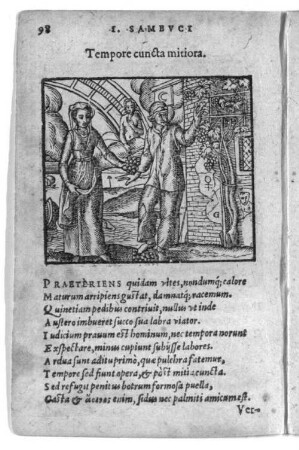 98 I. SAMBVCI
Tempore cuncta mitiora.
PRAETERIENS quidam vites, nondumq́; calore
Maturum arripiens gustat, damnatq́; racemum.
Quinetiam pedibus contriuit, nullus vt inde
Austero imbueret succo sua labra viator.
Iudicium prauum est hominum, nec tempora norunt
Exspectare, minus cupiunt subiisse labores.
Ardua sunt aditu primò, quę pulchra fatemur,
Tempore sed fiunt opera, & pòst mitia cuncta.
Sed refugit penitus botrum formosa puella,
Casta & enim, sidus nec palmiti amicum est.
Ver-